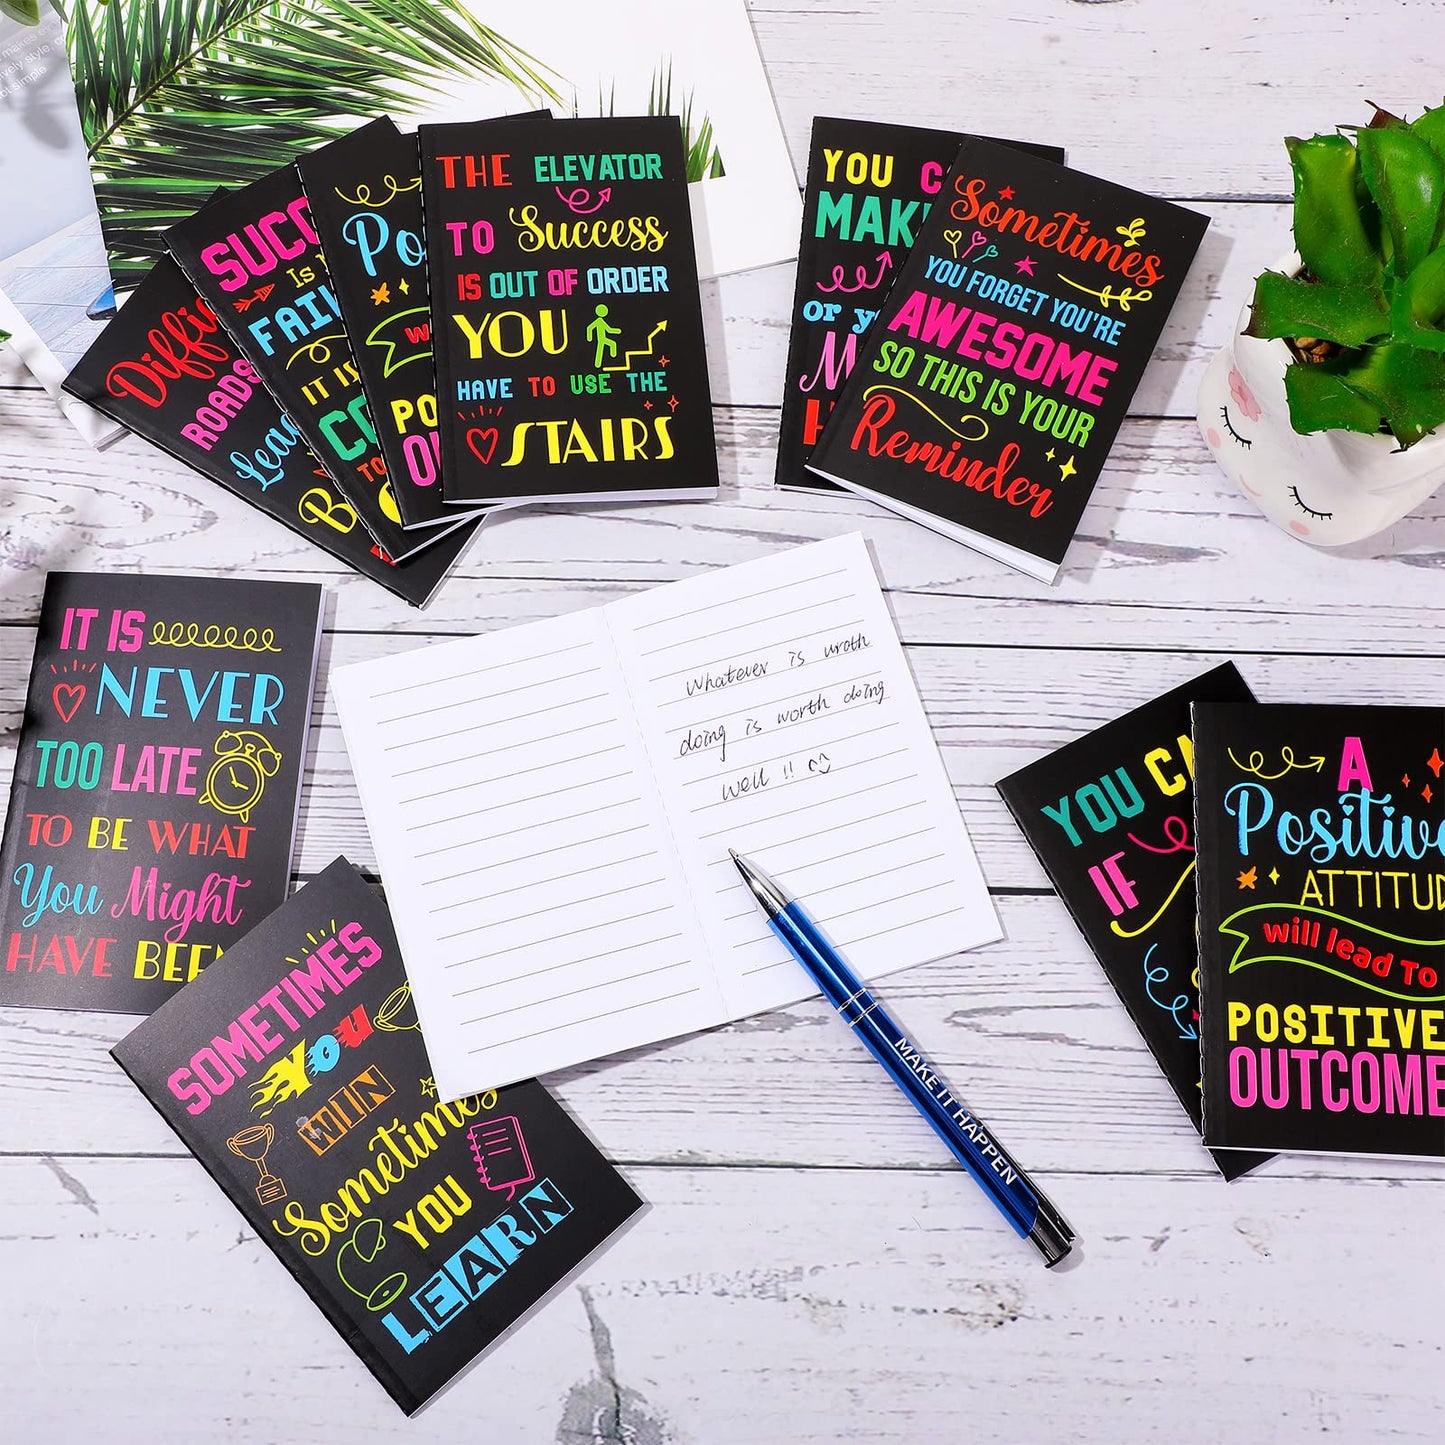 makes
style,
not simple
Diffic
ROADS
Lea
B
SUCC
IS
FAIL
IT IS
CO
TO
Po
PO
OU
THE ELEVATOR
TO Success
IS OUT OF ORDER
YOU
HAVE TO USE THE
STAIRS
YOU C
MAK
or y
M
H
Sometimes
YOU FORGET YOU'RE
AWESOME
SO THIS IS YOUR
Reminder
IT IS
NEVER
TOO LATE
TO BE WHAT
You Might
HAVE BEEN
whatever is wroth
doing is worth doing
well !!
SOMETIMES
YOU
WIN
Sometimes
YOU
LEARN
MAKE IT HAPPEN
YOU CA
IF
A
Positive
ATTITUD
will lead To
POSITIVE
OUTCOME